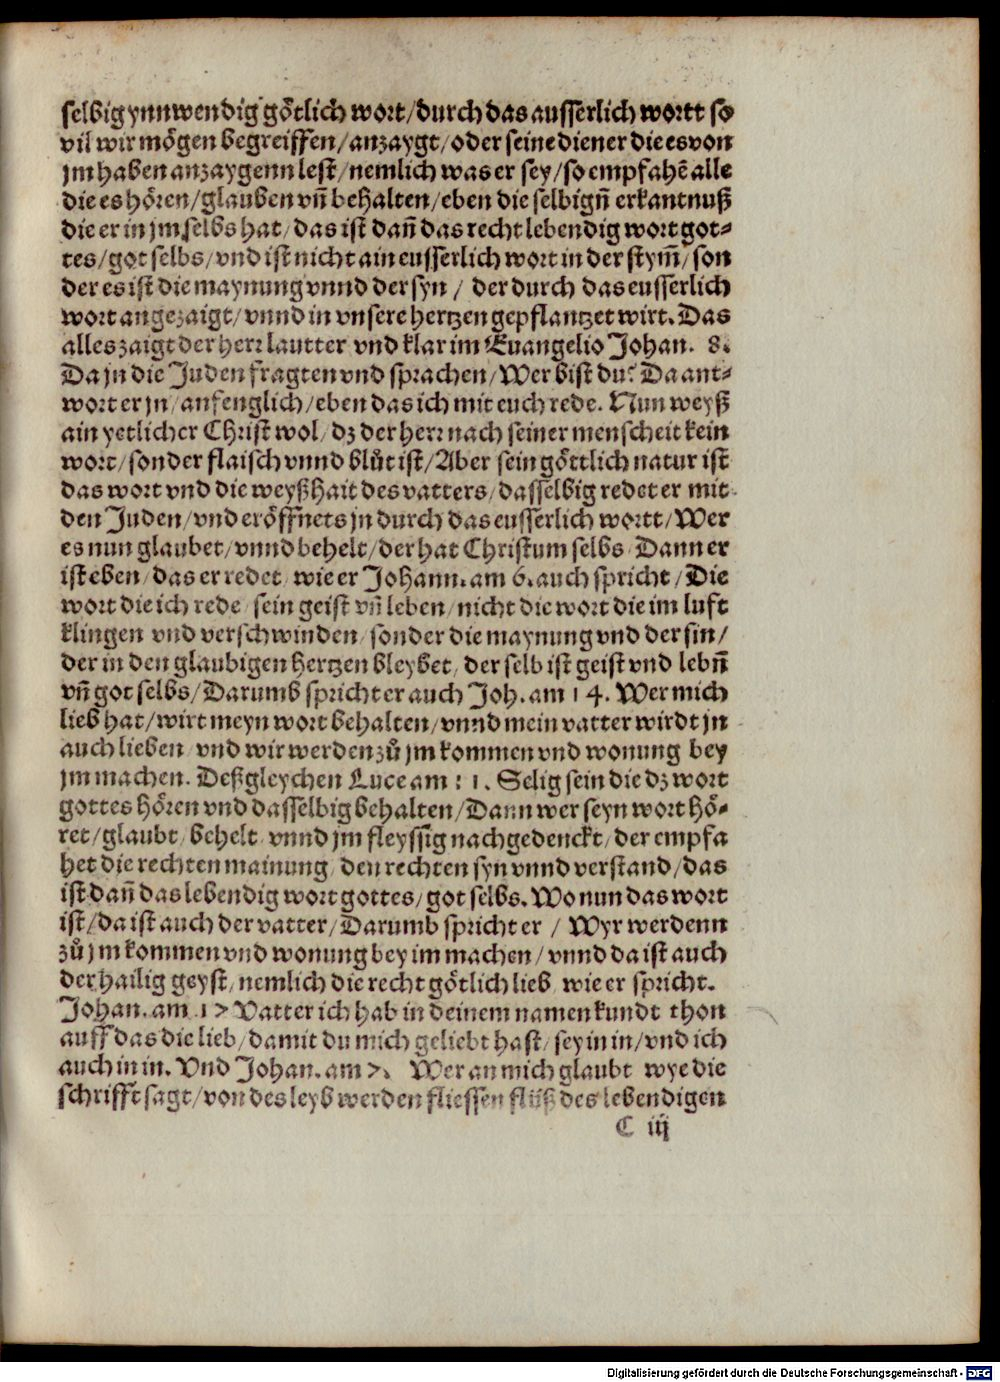 selbig ynnwendig götlich wort/durch das ausserlich wortt so
vil wir mögen begreiffen/anzaygt/oder seine diener die es von
jm haben anzaygenn lest/nemlich was er sey/so empfahē alle
die es hören/glauben vn̄ behalten/eben die selbign̄ erkantnuß
die er in jm selbs hat/das ist dan̄ das recht lebendig wort got-
tes/got selbs/vnd ist nicht ain eusserlich wort in der stym̄/son
der es ist die maynung vnnd der syn/ der durch das eusserlich
wort angezaigt/vnnd in vnsere hertzen gepflantzet wirt. Das
alles zaigt der herr lautter vnd klar im Euangelio Johan. 8.
Da jn die Juden fragten vnd sprachen/Wer bist du? Da ant-
wort er jn/anfenglich/eben das ich mit euch rede. Nun weyß
ain yetlicher Christ wol/dz der herr nach seiner menscheit kein
wort/sonder flaisch vnnd blůt ist/Aber sein göttlich natur ist
das wort vnd die weyßhait des vatters/dasselbig redet er mit
den Juden/vnd eröffnets jn durch das eusserlich wortt/Wer
es nun glaubet/vnnd behelt/der hat Christum selbs/Dann er
ist eben/das er redet/wie er Johann. am 6. auch spricht/Die
wort die ich rede/sein geist vn̄ leben/nicht die wort die im luft
klingen vnd verschwinden/sonder die maynung vnd der sin/
der in den glaubigen hertzen bleybet/der selb ist geist vnd lebn̄
vn̄ got selbs/Darumb spricht er auch Joh. am 14. Wer mich
lieb hat/wirt meyn wort behalten/vnnd mein vatter wirdt jn
auch lieben vnd wir werden zů jm kommen vnd wonung bey
jm machen. Deßgleychen Luce am 11. Selig sein die dz wort
gottes hören vnd dasselbig behalten/Dann wer seyn wort hö-
ret/glaubt/behelt/vnnd jm fleyssig nachgedenckt/der empfa
het die rechten mainung/den rechten syn vnnd verstand/das
ist dan̄ das lebendig wort gottes/got selbs. Wo nun das wort
ist/da ist auch der vatter/Darumb spricht er/ Wyr werdenn
zů jm kommen vnd wonung bey im machen/vnnd da ist auch
der hailig geyst/nemlich die recht götlich lieb/wie er spricht.
Johan. am 17 Vatter ich hab in deinem namen kundt thon
auff das die lieb/damit du mich geliebt hast/sey in in/vnd ich
auch in in. Vnd Johan. am 7. Wer an mich glaubt wye die
schrifft sagt/von des leyb werden fliessen flüß des lebendigen
C iij
Digitalisierung gefördert durch die Deutsche Forschungsgemeinschaft - DFG